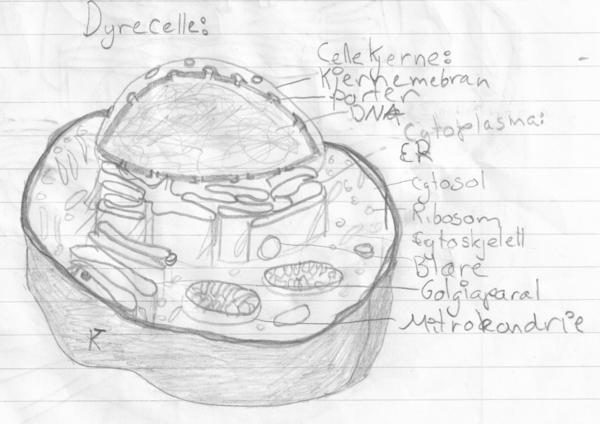 Dyrecelle:
Cellekjerne:
Kjernemebran
porter
DNA
Cytoplasma:
ER
Cytosol
Ribosom
Cytoskjelett
Blære
Golgiaparat
Mitrokondrie
K